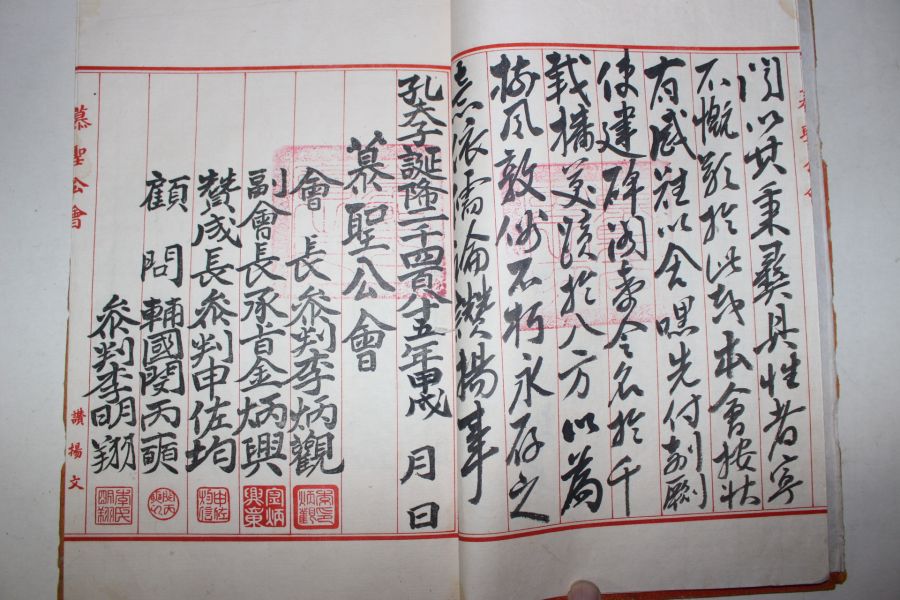 閭以其秉彝具性者寧
不慨歎於此哉本會按狀
有感玆以合
使建碑閣壽令名於千
載播芳蹟於八方以爲
樹風敦俗不朽永存之
意玆儒論讚揚事
孔夫子誕降二千四百八十五年甲戌 月 日
慕聖公會
會長 參判李炳觀
副會長承旨金炳興
贊成長參判申佐均
顧問輔國閔丙奭
參判李明翔
慕聖公會
讚揚文